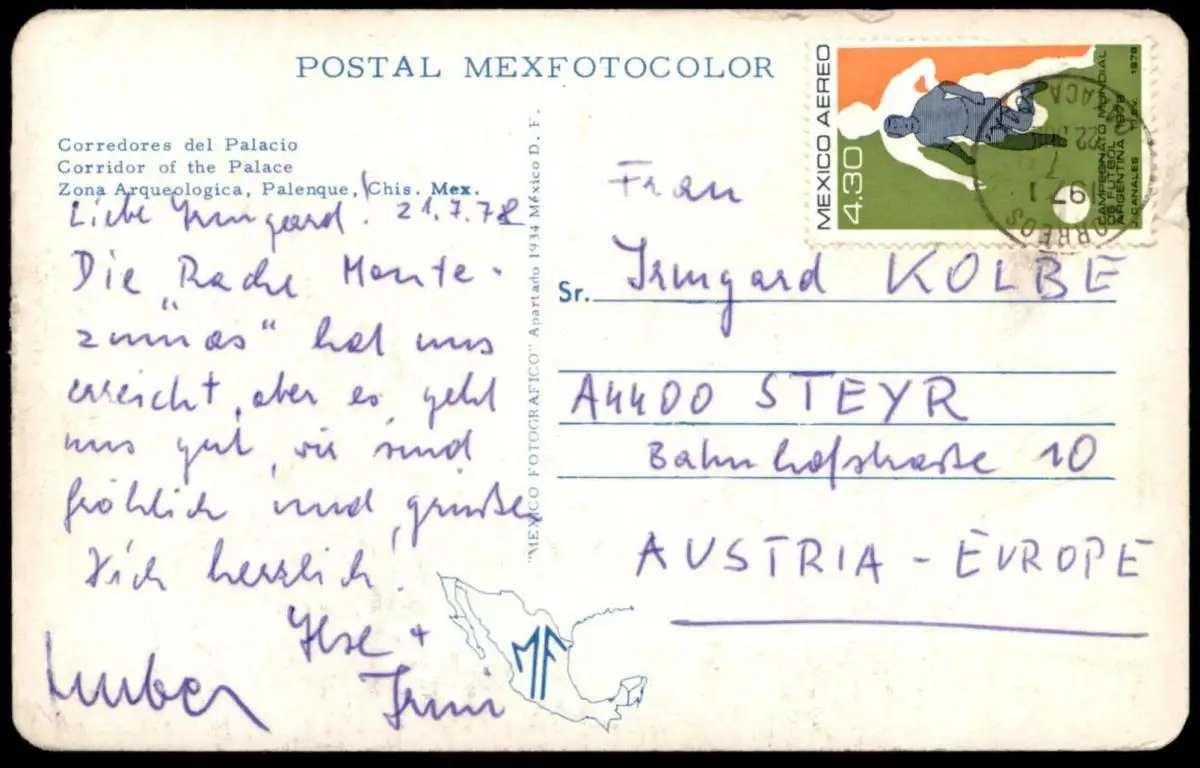 POSTAL MEXFOTOCOLOR
Corredores del Palacio
Corridor of the Palace
Zona Arqueologica, Palenque, Chis. Mex.
Liebe Irmgard! 21.7.78
Die „Rache Monte-
zumas“ hat uns
erreicht, aber es geht
uns gut, wir sind
fröhlich und grüßen
Dich herzlich!
Ilse +
Irmi
"MEXICO FOTOGRAFICO" Apartado 1934 México D. F.
MF
MEXICO AEREO
4.30
CAMPEONATO MUNDIAL
DE FUTBOL
ARGENTINA 1978
J. CANALES T.I.E.V. 1978
CORREOS
Frau
Sr. Irmgard KOLBE
A4400 STEYR
Bahnhofstraße 10
AUSTRIA - EUROPE